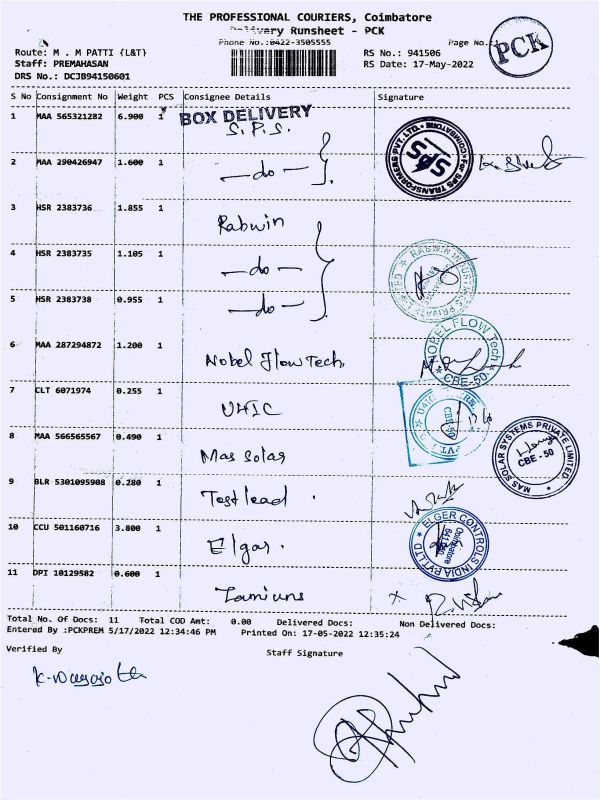 THE PROFESSIONAL COURIERS, Coimbatore
Delivery Runsheet - PCK
Phone No.:0422-3505555
Page No.:1
PCK
Route: M . M PATTI {L&T}
Staff: PREMAHASAN
DRS No.: DCJB94150601
RS No.: 941506
RS Date: 17-May-2022
S No Consignment No Weight PCS Consignee Details Signature
1 MAA 565321282 6.900 1 BOX DELIVERY
S.P.S.
For SPS TRANSFORMERS PVT. LTD. COIMBATORE SPS
2 MAA 290426947 1.600 1 —do—
3 HSR 2383736 1.855 1 Rabwin
4 HSR 2383735 1.105 1 —do—
RABWIN INDUSTRIES PRIVATE LIMITED
5 HSR 2383738 0.955 1 —do—
6 MAA 287294872 1.200 1 Nobel Flow Tech
NOBEL FLOW Tech CBE-50
7 CLT 6071974 0.255 1 UHIC
CBE-50
8 MAA 566565567 0.490 1 Mas Solar
MAS SOLAR SYSTEMS PRIVATE LIMITED CBE - 50
9 BLR 5301095908 0.280 1 Testlead
10 CCU 501160716 3.800 1 Elgar.
ELGER CONTROLS INDIA PVT LTD Coimbatore
11 DPI 10129582 0.600 1
Total No. Of Docs: 11 Total COD Amt: 0.00 Delivered Docs: Non Delivered Docs:
Entered By :PCKPREM 5/17/2022 12:34:46 PM Printed On: 17-05-2022 12:35:24
Verified By
Staff Signature